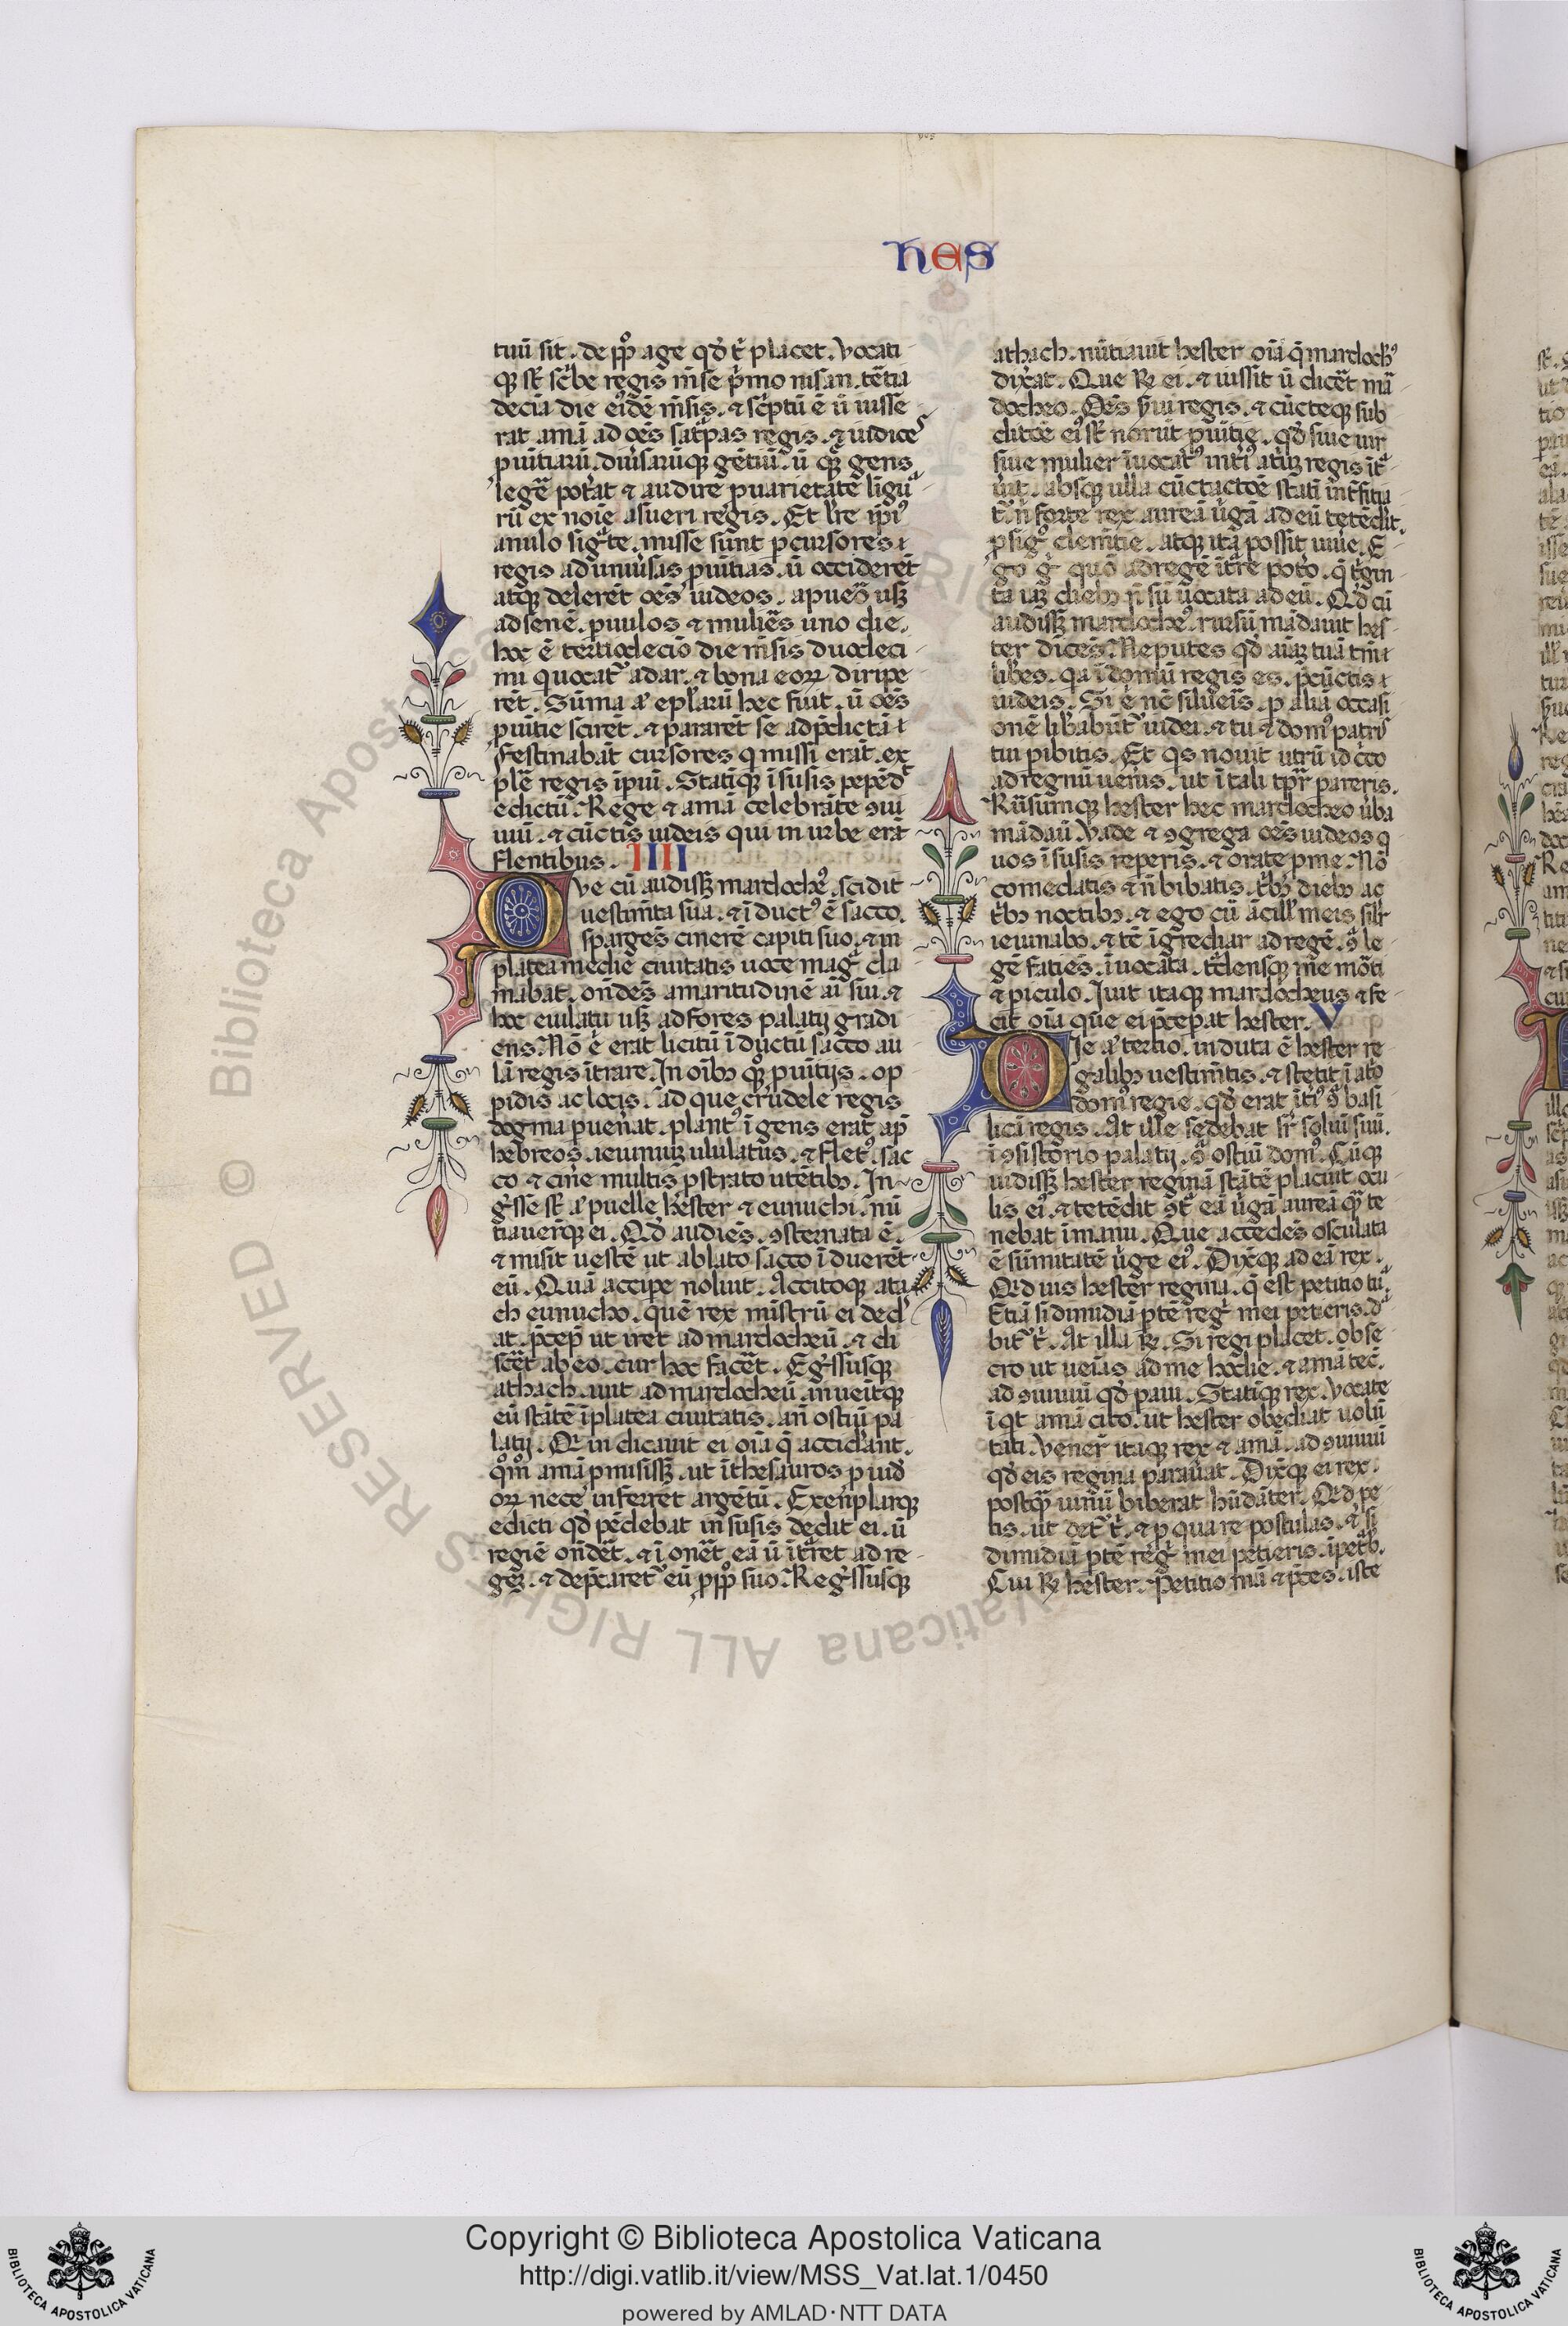 hes
tuū sit. de ppo age qd t placet. Vocati
q st scibe regis mse pmo nisan. tētia
decia die eidē msis. & sciptū ē ū iusse
rat amā ad oēs satpas regis. & iudice
puītiarū. diusarūq gētiū. ū q gens
legē potat & audire p uarietatē ligu
rū ex noie asueri regis. Et lre ipi
anulo sigte. misse sunt p cursores
regis ad uniusas puitias. ū occiderēt
atq delerēt oēs iudeos. a pueo usq
ad senē. puulos & muliēs uno die.
hoc ē tertiodecio die msis duodeci
mi q uocat adar. & bona eoꝝ diripe
rēt. Sūma a eplarū hec fuit. ū oēs
puitie scirēt. & pararēt se ad pdictā
Festinabāt cursores q missi erāt. ex
plē regis ipiū. Statiq i susis pepēd
edictū. Rege & amā celebrāte ꝯui
uiū. & cūctis iudeis qui in urbe erāt
flentibus. IIII
Que cū audissꝫ mardoche. scidit
uestimta sua. & iduct ē sacco.
spargēs cinerē capiti suo. & in
platea medie ciuitatis uoce mag cla
mabat. ondēs amaritudinē ai sui. &
hoc eiulatu usꝫ ad fores palatij gradi
ens. Nō ē erat licitū iductū sacco au
lā regis itrare. In oibꝫ q puitijs. op
pidis ac locis. ad que crudele regis
dogma puenat. plant igens erat ap
hebreos. ieiuniuꝫ ululatus. & flet. sac
co & cine multis p strato utētibꝫ. In
gsse st a puelle hester & eunuchi. nū
tiauerq ei. Qd audiēs. ꝯsternata ē.
& misit uestē ut ablato sacco iduerēt
eū. Quā accipe noluit. Accitoq ata
ch eunucho. quē rex mistrū ei ded
at. pcep ut iret ad mardocheū. & di
scēt ab eo. cur hoc facēt. Egssusq
athach. iuit ad mardocheū. inueitq
eū stātē i platea ciuitatis. an ostiū pa
latij. Qi indicauit ei oia q accidant.
qm amā pmisissꝫ. ut i thesauros p iud
oꝝ nece inferret argētū. Exēplarq
edicti qd pēdebat in susis dedit ei. ū
regie ondēt. & i onēt eā ū itret ad re
geꝫ. & depcaret eū p ppo suo. Regssusq
athach. nūtiauit hester oia q mardoch
dixat. Que R ei. & iussit ū dicēt mā
docheo. Oēs sui regis. & cūcteq sub
ditōē ei st norūt puitie. qd siue uir
siue mulier iuocat intī atriꝫ regis it
uit. absq ulla cūctactōē stati intfitia
t. n forte rex aureā uigā ad eū tetēdit.
p sig clemētie. atq ita possit uiue. E
go g quo ad regē itre poto. q tgin
ta iaꝫ diebꝫ n sū uocata ad eū. Qd cū
audissꝫ mardoche. rursū mādauit hes
ter dicēs. Ne putes qd aiaꝫ tuā tm
libes. qa i domū regis es. p cūctis
iudeis. Si e nc silueis. p aliā occasi
onē libabūt iudei. & tu & dom patri
tui pibitis. Et qs nouit utrū idcco
ad regnū uenis. ut i tali tpr pareris.
Rūsumq hester hec mardocheo ūba
mādau. Vade & ꝯgrega oēs iudeos q
uos i susis reperis. & orate p me. Nō
comedatis & n bibatis. tbꝫ diebꝫ ac
tbꝫ noctibꝫ. & ego cū ācill meis silr
ieiunabo. & tē igrediar ad regē. ꝯ le
gē faties. i uocata. tdensq me mōti
& piculo. Iuit itaq mardocheus & fe
cit oia que ei pcepat hester. V
Die a tertio. induta ē hester re
galibꝫ uestimtis. & stetit i ato
dom regie. qd erat iti ꝯ basi
licā regis. At ille sedebat sr soliū suū.
i ꝯsistorio palatij. ꝯ ostiū dom. Cūq
uidissꝫ hester reginā stātē placuit ocu
lis ei. & tetēdit ꝯt eā uigā aureā quā te
nebat i manu. Que accedēs osculata
ē sūmitatē uige ei. Dixq ad eā rex.
Qd uis hester regina. q est petitio tu
Etiā si dimidiā ptē reg mei petieris. d
bit t. At illa R. Si regi placet. obse
cro ut uenias ad me hodie. & amā tec.
ad ꝯuiuiū qd paui. Statiq rex. Vocate
iqt amā cito. ut hester obediat uolū
tati. Vener itaq rex & amā. ad ꝯuiuiū
qd eis regina parauat. Dixq ei rex.
postq uinū biberat hūdāter. Qd pe
tis. ut det t. & p qua re postulas. & si
dimidiā ptē reg mei petieris. ipetb.
Cui R hester. Petitio mā & pces. iste
Copyright © Biblioteca Apostolica Vaticana
http://digi.vatlib.it/view/MSS_Vat.lat.1/0450
powered by AMLAD·NTT DATA